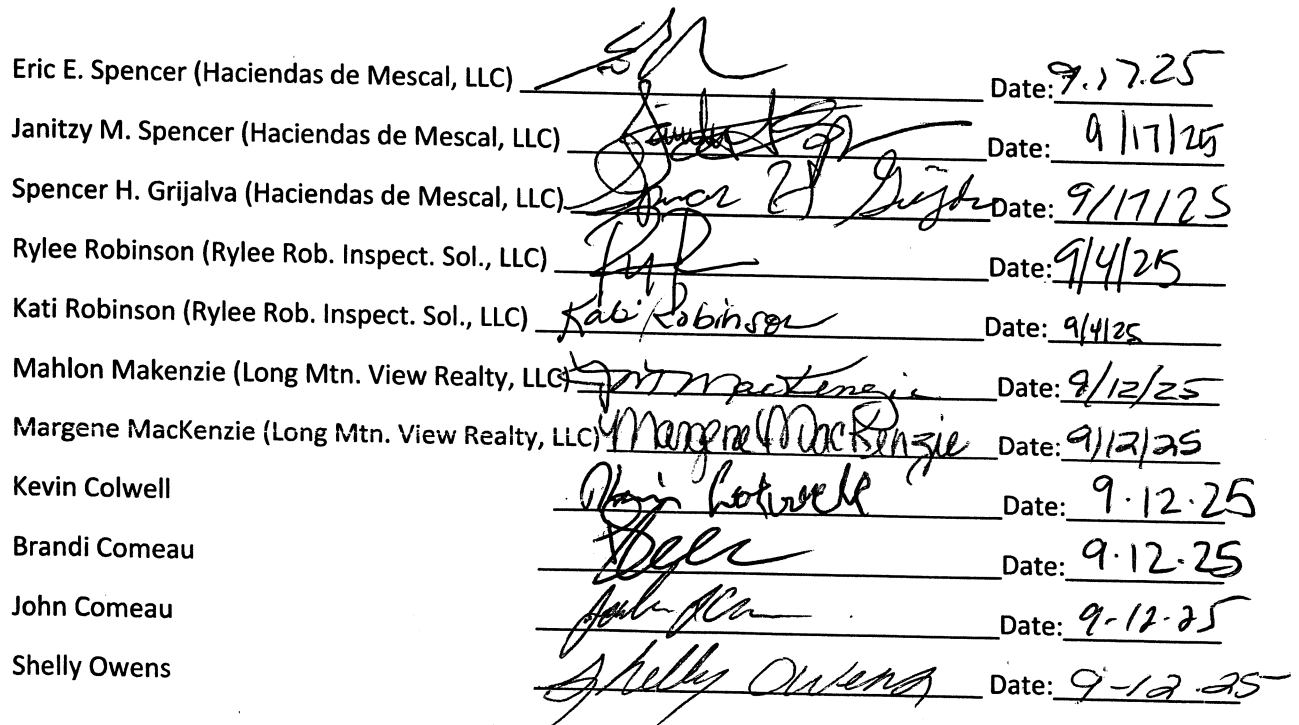 Eric E. Spencer (Haciendas de Mescal, LLC) Date: 9.17.25
Janitzy M. Spencer (Haciendas de Mescal, LLC) Date: 9/17/25
Spencer H. Grijalva (Haciendas de Mescal, LLC) Date: 9/17/25
Rylee Robinson (Rylee Rob. Inspect. Sol., LLC) Date: 9/4/25
Kati Robinson (Rylee Rob. Inspect. Sol., LLC) Kati Robinson Date: 9/4/25
Mahlon Makenzie (Long Mtn. View Realty, LLC) MacKenzie Date: 9/12/25
Margene MacKenzie (Long Mtn. View Realty, LLC) Margene MacKenzie Date: 9/12/25
Kevin Colwell Date: 9.12.25
Brandi Comeau Date: 9.12.25
John Comeau Date: 9-12-25
Shelly Owens Shelly Owens Date: 9-12-25